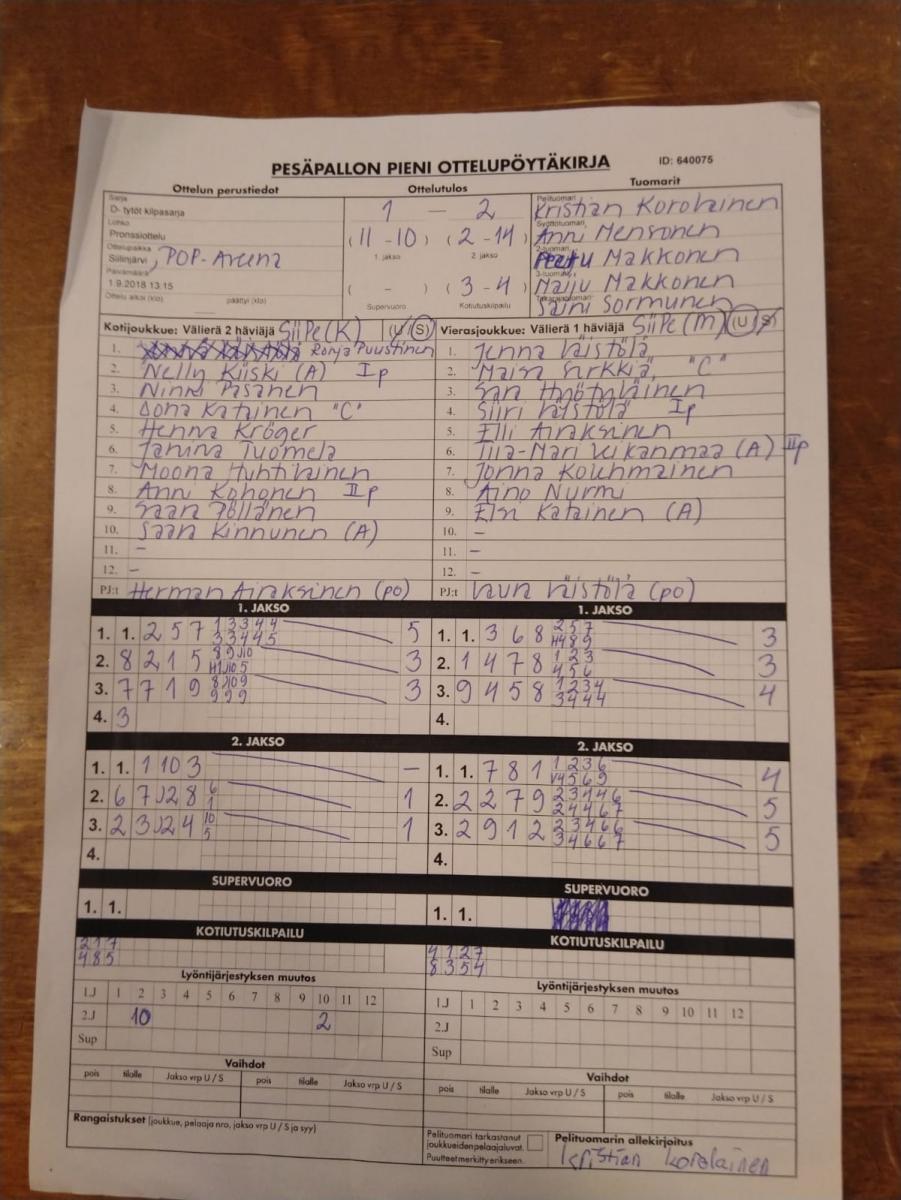 PESÄPALLON PIENI OTTELUPÖYTÄKIRJA ID: 640075
Ottelun perustiedot Ottelutulos Tuomarit
Sarja
D- tytöt kilpasarja
Lohko
Pronssiottelu
Ottelupaikka
Siilinjärvi, POP-Areena
Päivämäärä
1.9.2018 13:15
Ottelu alkoi (klo) päättyi (klo)
1 – 2
(11 - 10) (2 - 14)
1. jakso 2. jakso
( - ) (3 - 4)
Supervuoro Kotiutuskilpailu
Pelituomari
Kristian Korolainen
Syöttötuomari
Anni Mensonen
2-tuomari
Makkonen
3-tuomari
Maiju Makkonen
Takarajatuomari
Saini Sormunen
Kotijoukkue: Välierä 2 häviäjä SiiPe (K) U/S
1. Ronja Puustinen
2. Nelly Kiiski (A) Ip
3. Ninni Pasanen
4. Oona Katainen "C"
5. Henna Kröger
6. Janina Tuomela
7. Moona Huhtilainen
8. Anni Kohonen IIp
9. Saan Pöllänen
10. Saara Kinnunen (A)
11. –
12. –
PJ:t Herman Airaksinen (po)
Vierasjoukkue: Välierä 1 häviäjä SiiPe (M) U/S
1. Jenna Väistölä
2. Maisa Surkkia, "C"
3. Hyötyläinen
4. Siiri Väistölä Ip
5. Elli Airaksinen
6. Iida-Mari Vekanmaa (A) IIp
7. Jonna Kolehmainen
8. Aino Nurmi
9. Elsi Katainen (A)
10. –
11. –
12. –
PJ:t Laura Väistölä (po)
1. JAKSO 1. JAKSO
1. 1. 2 5 7 1 3 3 4 4 5
3 3 4 4 5
2. 8 2 1 5 3
3. 7 7 1 9 3
9 9 9
4. 3
1. 1. 3 6 8 2 5 7 3
2. 1 4 7 8 1 2 3 3
4 5 6
3. 9 4 5 8 1 2 3 4 4
3 4 4 4
4.
2. JAKSO 2. JAKSO
1. 1. 1 10 3 –
2. 6 7 J2 8 6 1
1
3. 2 3 J2 4 10 1
5
4.
1. 1. 7 8 1 1 2 3 6 4
2. 2 2 7 9 2 3 4 4 6 5
2 4 4 6 7
3. 2 9 1 2 2 3 4 6 6 5
3 4 6 6 7
4.
SUPERVUORO SUPERVUORO
1. 1. 1. 1.
KOTIUTUSKILPAILU KOTIUTUSKILPAILU
2 1 7
4 8 5
4 1 2 7
8 3 5 4
Lyöntijärjestyksen muutos Lyöntijärjestyksen muutos
1.J 1 2 3 4 5 6 7 8 9 10 11 12
2.J 10 2
Sup
1.J 1 2 3 4 5 6 7 8 9 10 11 12
2.J
Sup
Vaihdot Vaihdot
pois tilalle Jakso vrp U / S pois tilalle Jakso vrp U / S
pois tilalle Jakso vrp U / S pois tilalle Jakso vrp U / S
Rangaistukset (joukkue, pelaaja nro, jakso vrp U / S ja syy)
Pelituomari tarkastanut
joukkueiden pelaajaluvat.
Puutteet merkitty erikseen.
Pelituomarin allekirjoitus
Kristian Korolainen